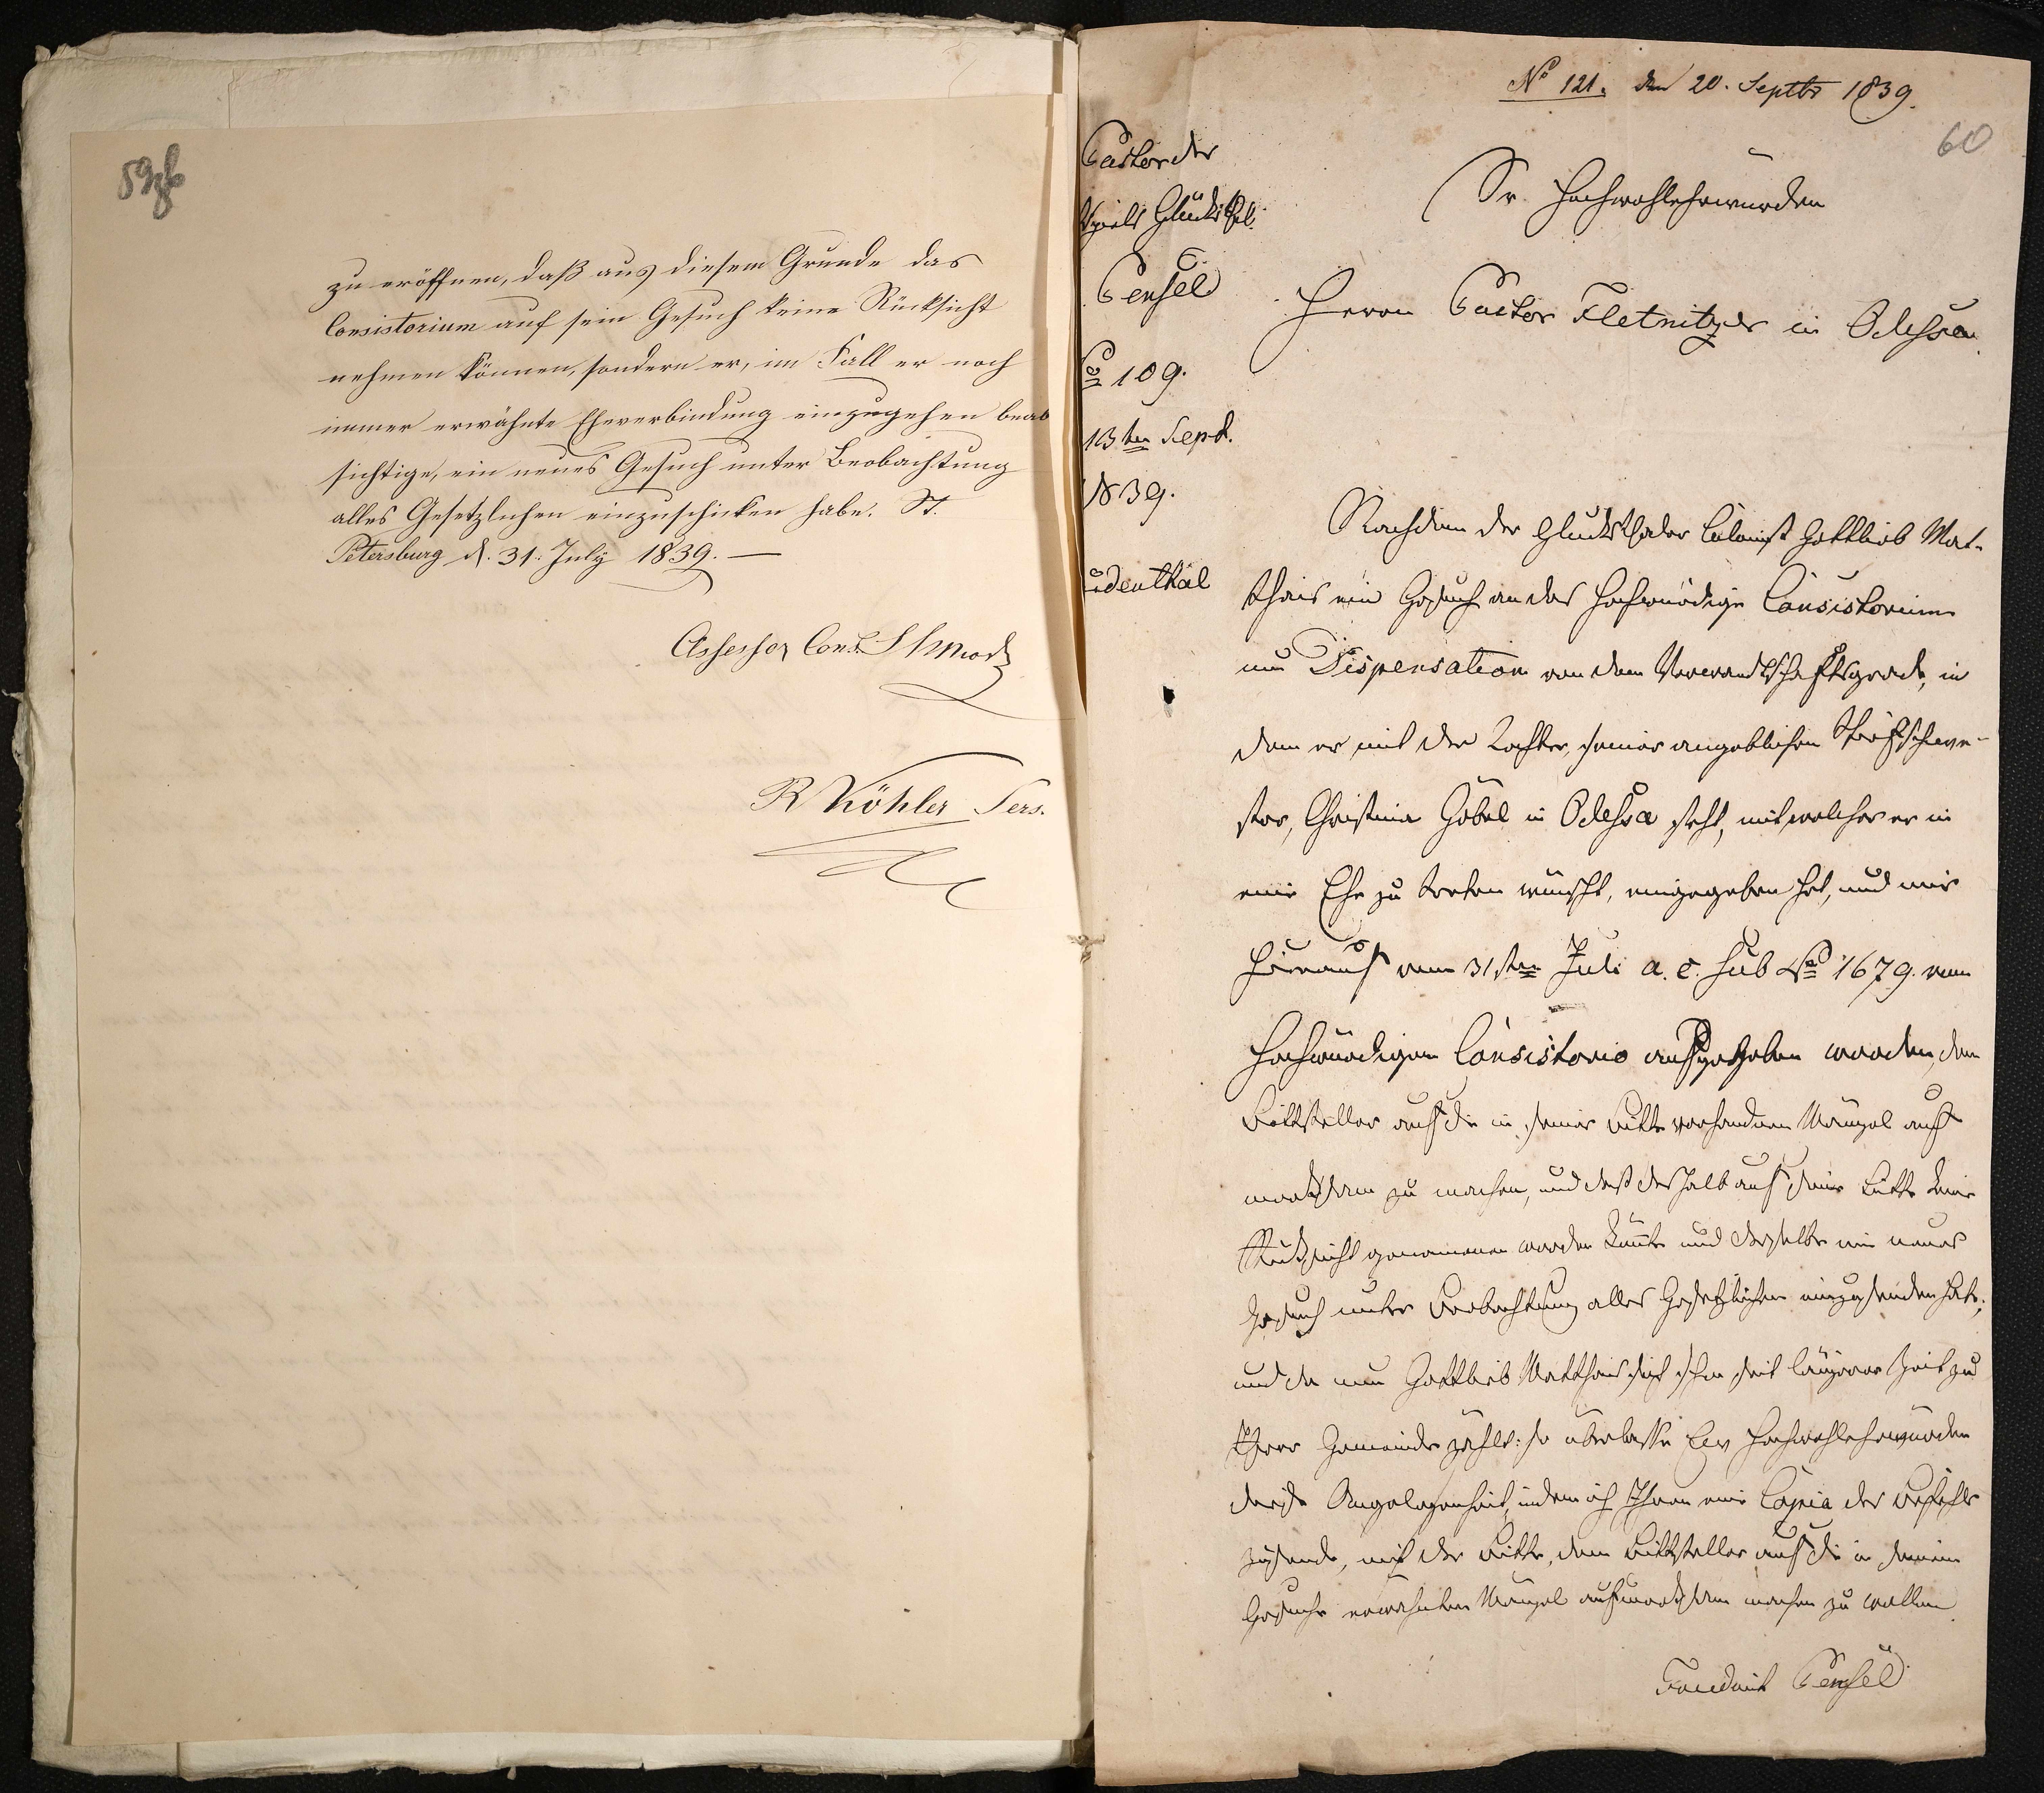 59zb
zu eröffnen, daß aus diesem Grunde das
Consistorium auf sein Gesuch keine Rücksicht
nehmen können, sondern er, im Fall er noch
immer erwähnte Eheverbindung einzugehen beab
sichtige, ein neues Gesuch unter Beobachtung
alles Gesetzlichen einzuschicken habe. St.
Petersburg d. 31. July 1839. —
Assessor Cons.
R Köhler Secr.
No 121. den 20. Septbr 1839.
60
Pastor des
spiels Glücksthl.
Pensel
No 109.
13ten Sept.
1839.
udenthal
Sr Hochwohlehrwürden
Herrn Pastor Fletnitzer in Odessa.
Nachdem der Glücksthaler Colonist Gottlieb Mat-
thais ein Gesuch an das Hochwürdige Consistorium
um Dispensation von dem Verwandtschaftsgrade, in
dem er mit der Tochter, seiner angeblichen Stiefschwe-
ster, Christina Göbel in Odessa steht, mit welcher er in
eine Ehe zu treten wünscht, eingegeben hat, und mir
hierauf vom 31sten Juli a. c. sub No 1679. vom
Hochwürdigen Consistorio aufgegeben worden, dem
Bittsteller auf die in seiner Bitte vorhandnen Mängel auf
merksam zu machen, und daß deshalb auf seine Bitte keine
Rücksicht genommen werden könnte und derselbe ein neues
Gesuch unter Beobachtung alles Gesetzlichen einzusenden habe;
und da nun Gottlieb Matthais sich schon seit längerer Zeit zu
Ihrer Gemeinde zählt: so überlasse Ew Hochwohlehrwürden
diese Angelegenheit, indem ich Ihnen eine Copia des Befehls
zusende, mit der Bitte, dem Bittsteller auf die in seinem
Gesuche erwähnten Mängel aufmerksam machen zu wollen.
Pensel